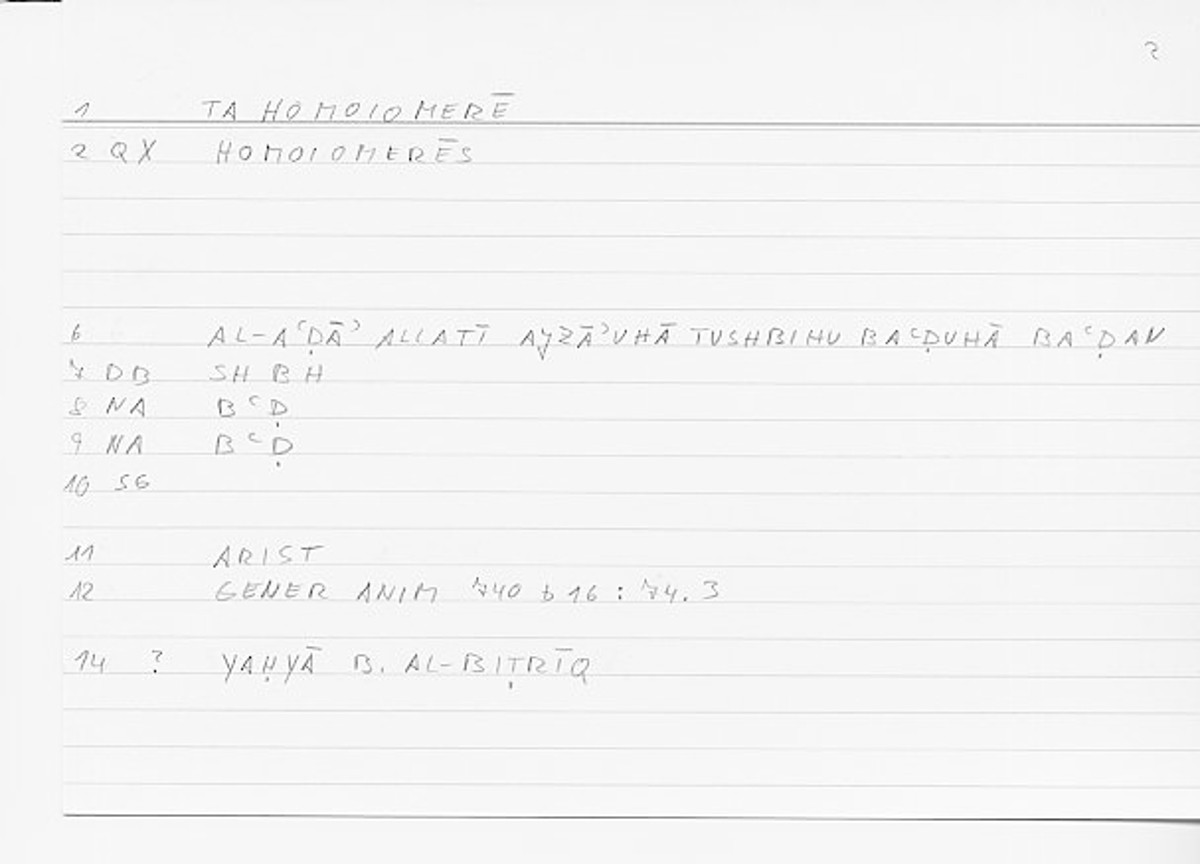 2
1 TA HOMOIOMERĒ
2 QX HOMOIOMERĒS
6 AL-AʿḌĀʾ ALLATĪ AJZĀʾUHĀ TUSHBIHU BAʿḌUHĀ BAʿḌAN
7 DB SH B H
8 NA B ʿ Ḍ
9 NA B ʿ Ḍ
10 SG
11 ARIST
12 GENER ANIM 740 b 16 : 74.3
14 ? YAḤYĀ B. AL-BIṬRĪQ